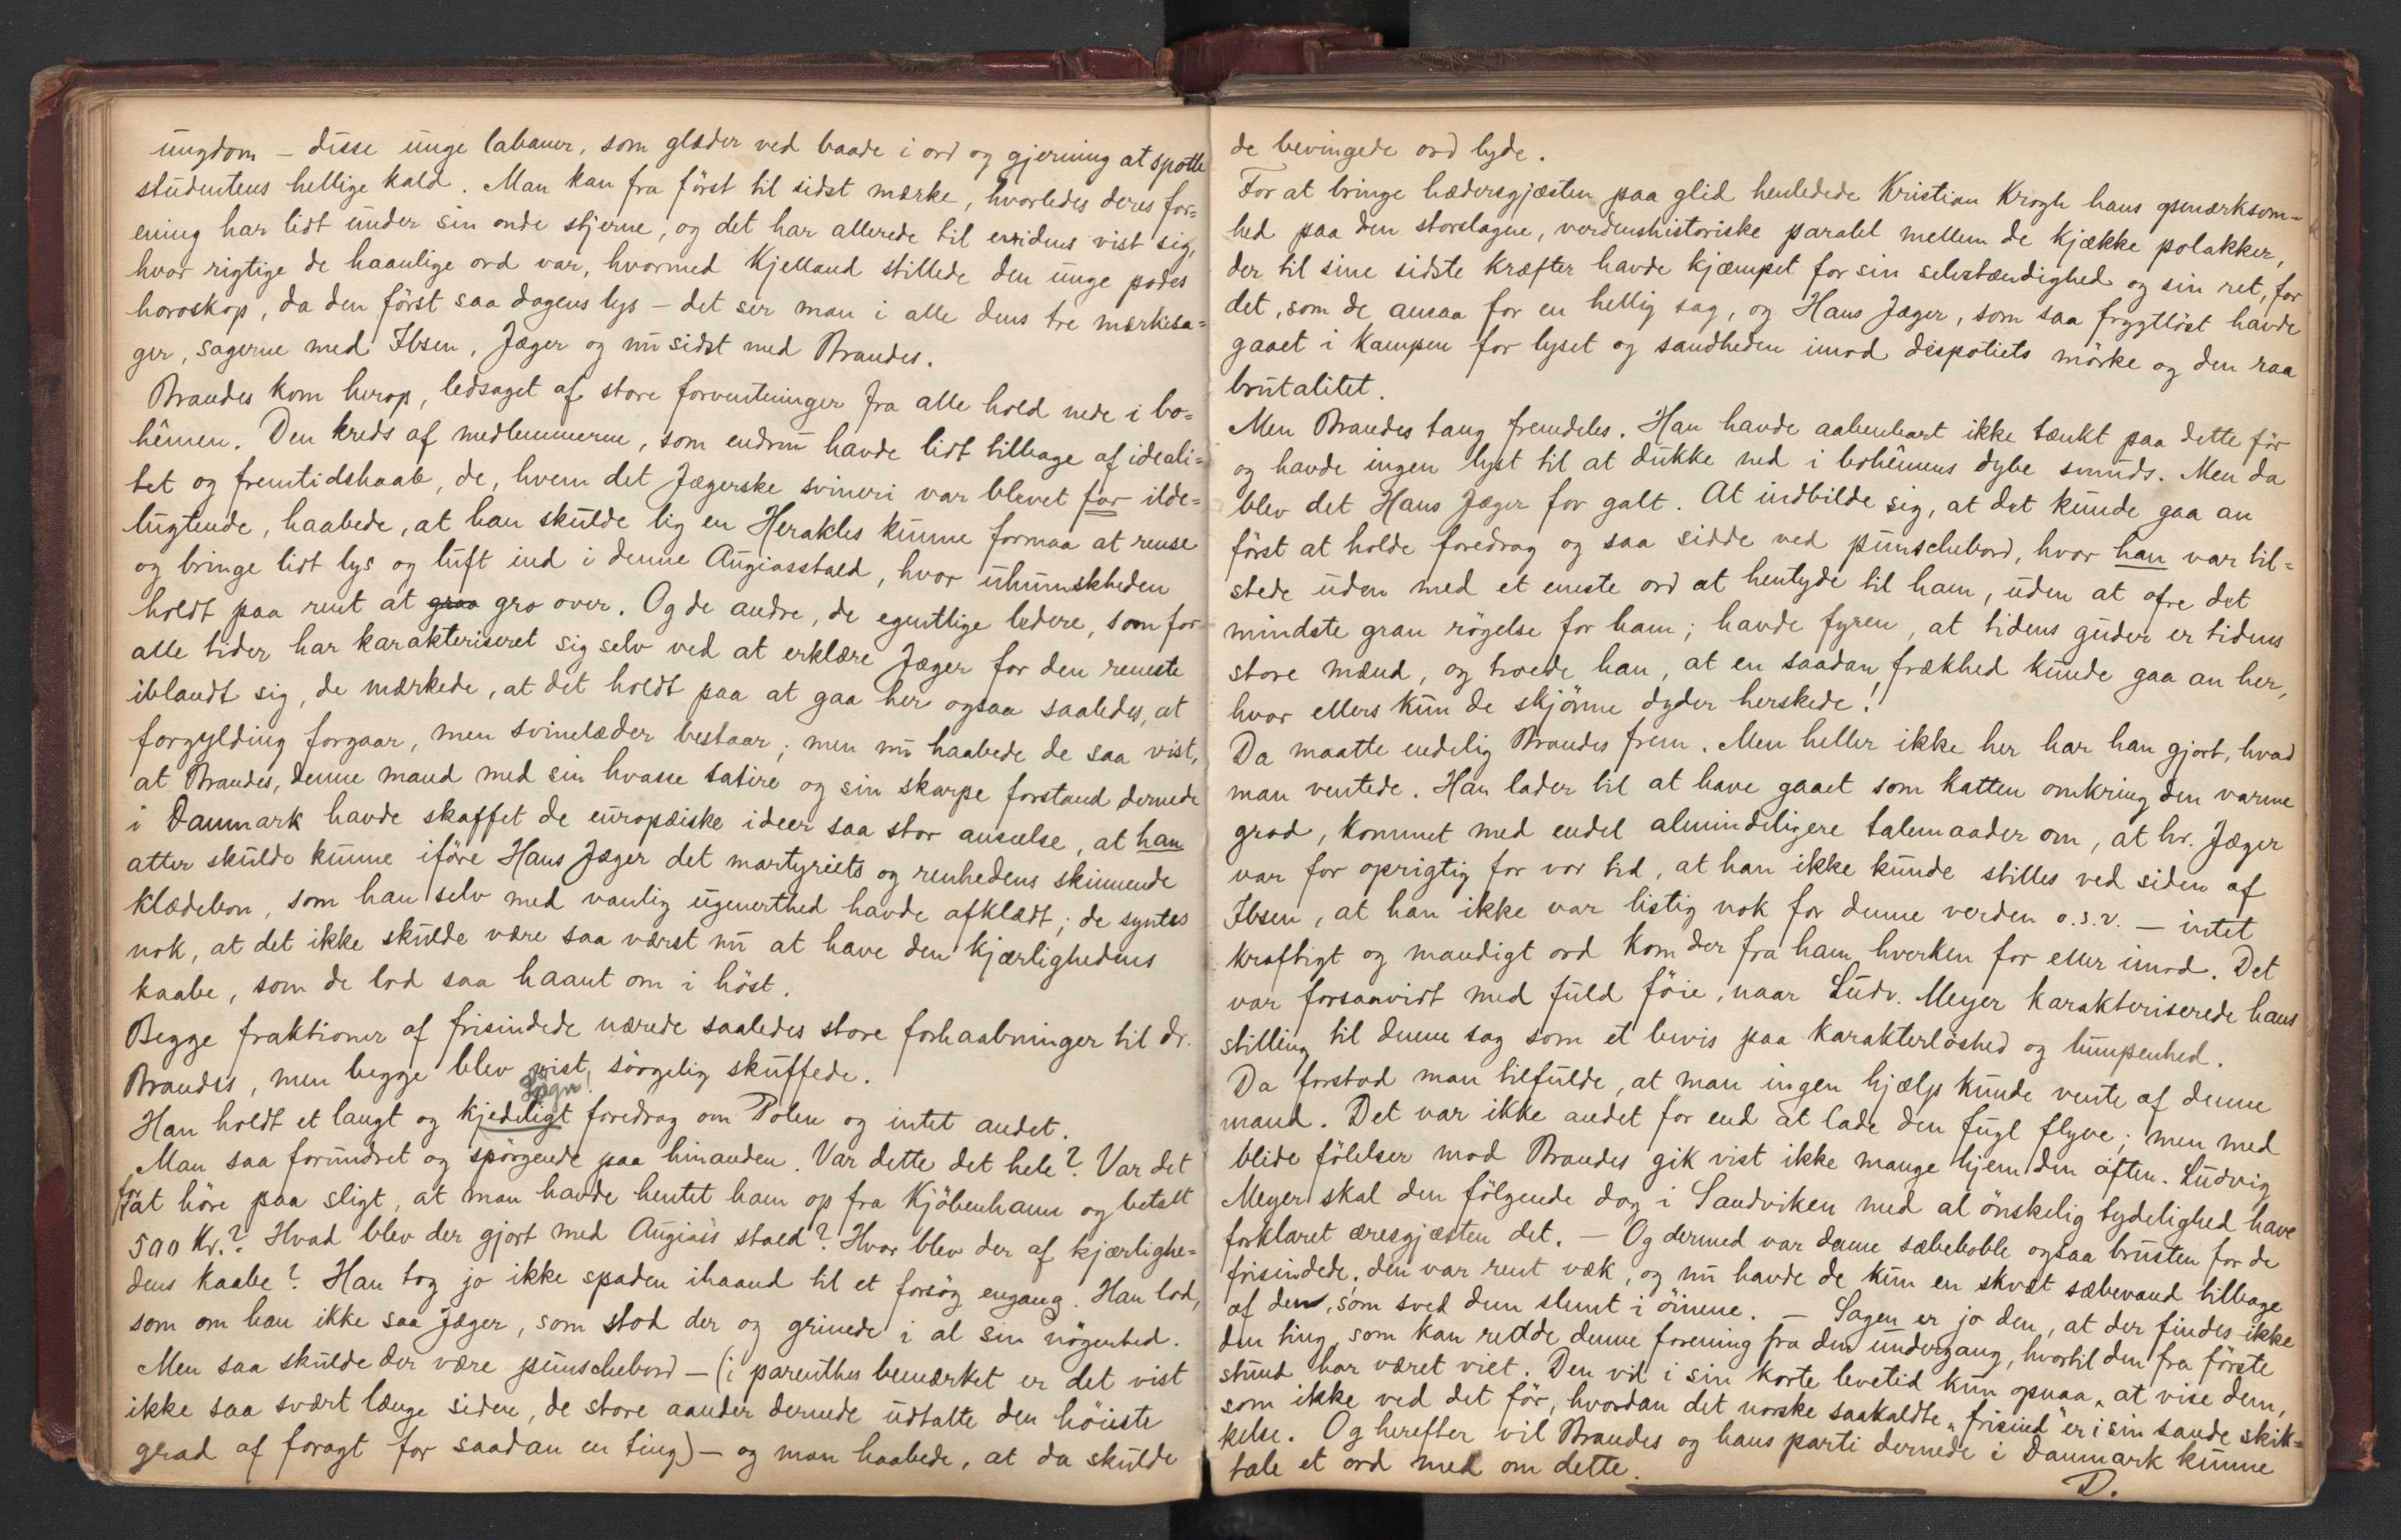 ungdom – disse unge labaner, som glæder ved baade i ord og gjerning at spotte
studentens hellige kald. Man kan fra först til sidst mærke, hvorledes deres for=
ening har lidt under sin onde stjerne, og det har allerede til evidens vist sig,
hvor rigtige de haanlige ord var, hvormed Kjelland stillede den unge podes
horoskop, da den först saa dagens lys – det ser man i alle dens tre mærkesa=
ger, sagerne med Ibsen, Jæger og nu sidst med Brandes.
Brandes kom herop, ledsaget af store forventninger fra alle hold nede i bo=
hêmen. Den kreds af medlemmerne, som endnu havde lidt tilbage af ideali=
tet og fremtidshaab, de, hvem det Jægerske svineri var blevet for ilde=
lugtende, haabede, at han skulde lig en Herakles kunne formaa at rense
og bringe lidt lys og luft ind i denne Augiasstald, hvor uhumskheden
holdt paa rent at graa gro over. Og de andre, de egentlige ledere, som for
alle tider har karakteriseret sig selv ved at erklære Jæger for den reneste
iblandt sig, de mærkede, at det holdt paa at gaa her ogsaa saaledes, at
forgylding forgaar, men svinelæder bestaar; men nu haabede de saa vist,
at Brandes, denne mand med sin hvasse satire og sin skarpe forstand dernede
i Danmark havde skaffet de europæiske ideer saa stor anseelse, at han
atter skulde kunne iföre Hans Jæger det martyriets og renhedens skinnende
klædebon, som han selv med vanlig ugenerthed havde afklædt; de syntes
nok, at det ikke skulde være saa værst nu at have den kjærlighedens
kaabe, som de lod saa haant om i höst.
Begge fraktioner af frisindede nærede saaledes store forhaabninger til dr.
Brandes, men begge blev vist sörgelig skuffede.
Lögn!
Han holdt et langt og kjedeligt foredrag om Polen og intet andet.
Man saa forundret og spörgende paa hinanden. Var dette det hele? Var det
for at höre paa sligt, at man havde hentet ham op fra Kjöbenhavn og betalt
500 Kr.? Hvad blev der gjort med Augias's stald? Hvor blev der af kjærlighe=
dens kaabe? Han tog jo ikke spaden ihaand til et forsög engang. Han lod,
som om han ikke saa Jæger, som stod der og grinede i al sin nögenhed.
Men saa skulde der være punschebord – (i parenthes bemærket er det vist
ikke saa svært længe siden, de store aander dernede udtalte den höieste
grad af foragt for saadan en ting) – og man haabede, at da skulde
de bevingede ord lyde.
For at bringe hædersgjæsten paa glid henledede Kristian Krogh hans opmærksom=
hed paa den storslagne, verdenshistoriske paralel mellem de kjække polakker,
der til sine sidste kræfter havde kjæmpet for sin selvstændighed og sin ret, for
det, som de ansaa for en hellig sag, og Hans Jæger, som saa frygtlöst havde
gaaet i kampen for lyset og sandheden imod despotiets mörke og den raa
brutalitet.
Men Brandes taug fremdeles. Han havde aabenbart ikke tænkt paa dette för
og havde ingen lyst til at dukke ned i bohêmens dybe smuds. Men da
blev det Hans Jæger for galt. At indbilde sig, at det kunde gaa an
först at holde foredrag og saa sidde ved punschebord, hvor han var til=
stede uden med et eneste ord at hentyde til ham, uden at ofre det
mindste gran rögelse for ham; havde fyren, at tidens guder er tidens
store mænd, og troede han, at en saadan frækhed kunde gaa an her,
hvor ellers kun de skjönne dyder herskede!
Da maatte endelig Brandes frem. Men heller ikke her har han gjort, hvad
man ventede. Han lader til at have gaaet som katten omkring den varme
gröd, kommet med endel almindeligere talemaader om, at hr. Jæger
var for oprigtig for vor tid, at han ikke kunde stilles ved siden af
Ibsen, at han ikke var listig nok for denne verden o.s.v. – intet
kraftigt og mandigt ord kom der fra ham hverken for eller imod. Det
var forsaavidt med fuld föie, naar Ludv. Meyer karakteriserede hans
stilling til denne sag som et bevis paa karakterlöshed og lumpenhed.
Da forstod man tilfulde, at man ingen hjælp kunde vente af denne
mand. Det var ikke andet for end at lade den fugl flyve; men med
blide fölelser mod Brandes gik vist ikke mange hjem den aften. Ludvig
Meyer skal den fölgende dag i Sandviken med al önskelig tydelighed have
forklaret æresgjæsten det. – Og dermed var denne sæbeboble ogsaa brusten for de
frisindede; den var rent væk, og nu havde de kun en skvæt sæbevand tilbage
af den, som sved dem slemt i öinene. – Sagen er jo den, at der findes ikke
den ting, som kan redde denne forening fra den undergang, hvortil den fra förste
stund har været viet. Den vil i sin korte levetid kun opnaa, at vise dem,
som ikke ved det för, hvordan det norske saakaldte „frisind" er i sin sande skik=
kelse. Og herefter vil Brandes og hans parti dernede i Danmark kunne
tale et ord med om dette.
D.